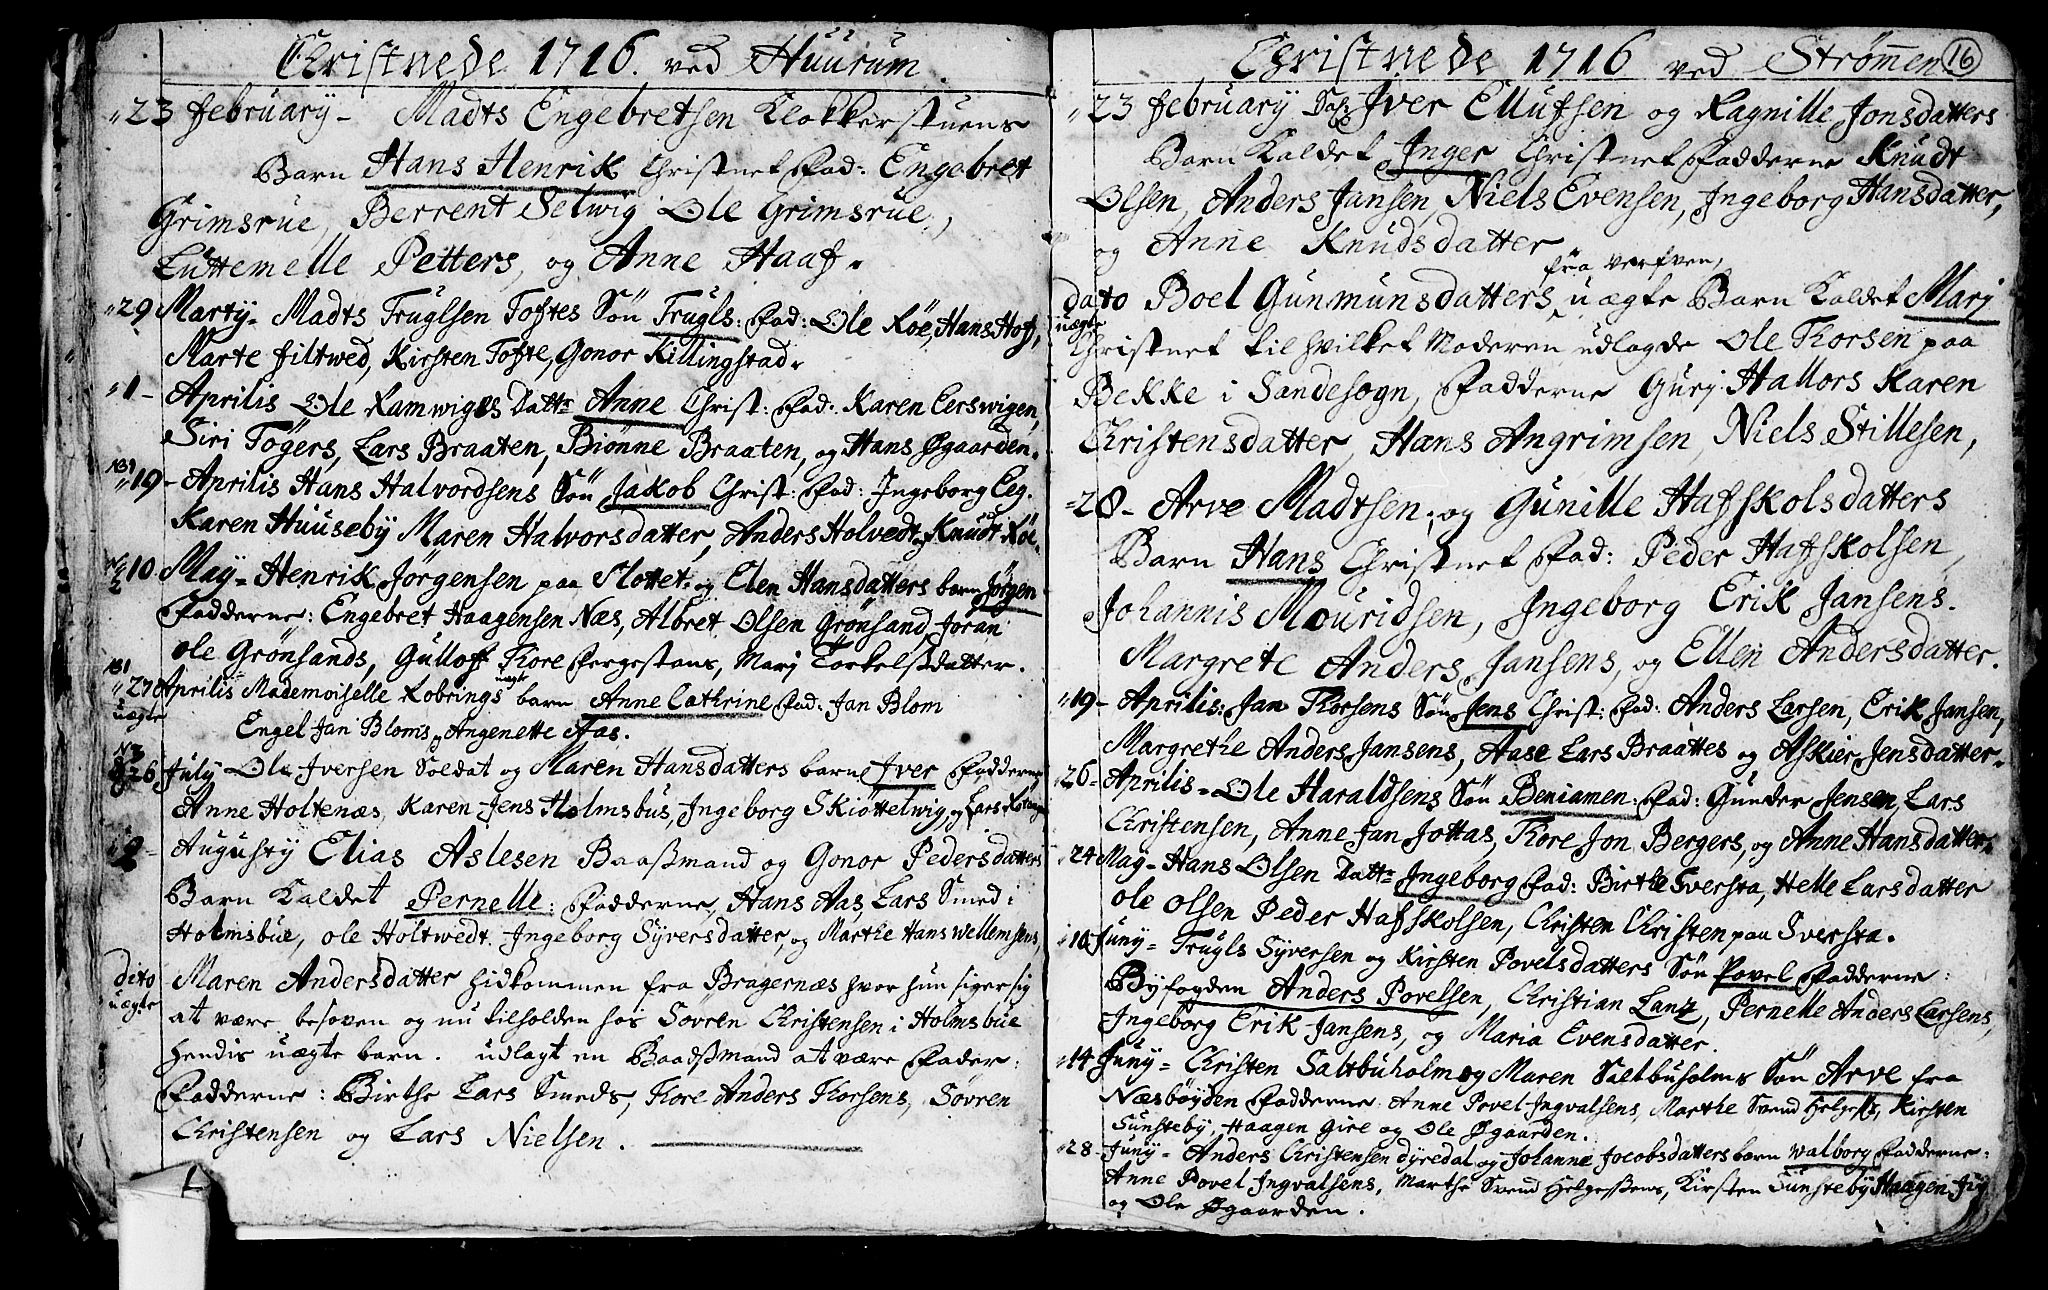 Christnede 1716. ved Huurum.
23 february - Madts Engebretsen Klokkerstuens
Barn Hans Henrik Christnet Fad: Engebret
Grimsrue, Berrent Selwig Ole Grimsrue,
Luttemelle Petters, og Anne Haaf.
29 Marty - Madts Truglsen Toftes Søn Trugls: Fad: Ole Røe, Hans Hof,
Marte filtwed, Kirsten Tofte, Gonor Killingstad.
1 - Aprilis Ole Ramwiges Datt: Anne Christ: Fad: Karen Eerswigen,
Siri Tøgers, Lars Braaten, Biønne Braaten, og Hans Øgaarden.
19 - Aprilis Hans Halvordsens Søn Jakob Christ: Fad: Ingeborg Eeg.
Karen Huuseby Maren Halvorsdatter, Anders Holvedt, og Knudt Røe.
10 May - Henrik Jørgensen paa Slottet og Elen Hansdatters barn Jørgen
Fadderne: Engebret Haagensen Næs, Albret Olsen Grønsand, Joran
Ole Grønsands, Gulloff Tore Bergestans, Marj Torkelsdatter.
27 Aprilis Mademoiselle Kobrings uægte barn Anne Cathrine Fad: Jan Blom
uægte
Engel Jan Bloms og Angenette Aas.
26 July Ole Iversen Soldat og Maren Hansdatters barn Iver Fadderne
Anne Holtenæs, Karen Jens Holmsbus, Ingeborg Skiøttelwig, og Lars
2 - Augusty Elias Aslesen Baaßmand og Gonor Pedersdatters
Barn Kaldet Pernelle: Fadderne, Hans Aas, Lars Smed i
Holmsbue, ole Holtwedt. Ingeborg Syversdatter, og Marthe Hans Wellemsens
dito Maren Andersdatter hidkommen fra Bragernæs hvor hun siger sig
uægte
at være besoven og nu tilholden hos Søvren Christensen i Holmsbue
hendis uægte barn. udlagt en Baadßmand at være Fader:
Fadderne: Birthe Lars Smeds, Tore Anders Torsens, Søvren
Christensen og Lars Nielsen.
Christnede 1716 ved Strømmen 16
23 february Iver Ellufsen og Ragnille Jonsdatters
Barn Kaldet Inger Christnet Fadderne Knudt
Olsen, Anders Jansen Niels Evensen, Ingeborg Hansdatter,
og Anne Knudsdatter
fra verfven,
dato Boel Gunmunsdatters uægte Barn Kaldet Marj
uægte
Christnet til hvilket Moderen udlagde Ole Thorsen paa
Bekke i Sandesogn, Fadderne Gurj Hallors Karen
Christensdatter, Hans Angrimsen, Niels Stillesen,
28 - Arve Madtsen, og Gunille Hafskolsdatters
Barn Hans Christnet Fad: Peder Hafskolsen,
Johannis Mouridsen, Ingeborg Erik Jansens.
Margrete Anders Jansens, og Ellen Andersdatter.
19 - Aprilis: Jan Thorsens Søn Jens Christ: Fad: Anders Larsen, Erik Jansen,
Margrethe Anders Jansens, Aase Lars Braattes og Askier Jensdatter.
26 - Aprilis - Ole Haraldsens Søn Beniamen: Fad: Gunder Jensen, Lars
Christensen, Anne Jan Jottas, Thore Jon Bergers, og Anne Hansdatter.
24 May - Hans Olsen Datt: Ingeborg Fad: Birthe Sversta, Helle Larsdatter
ole olsen Peder Hafskolsen, Christen Christen paa Sversta.
Juny - Trugls Syversen og Kirsten Povelsdatters Søn Povel Fadderne:
Byfogden Anders Povelsen, Christian Lanz, Pernelle Anders Larsens,
Ingeborg Erik Jansens, og Maria Evensdatter.
14 Juny - Christen Saltbuholm og Maren Saltbuholms Søn Arve fra
Næsbøyden Fadderne: Anne Povel Ingvalsens, Marthe Svend Helgeß, Kirsten
Sunsteby, Haagen Gire og Ole Øgaarden.
28 - Juny - Anders Christensen Dyredal og Johanne Jocobsdatters barn Walborg Fadderne:
Anne Povel Ingvalsens, Marthe Svend Helgeßens, Kirsten Sunsteby Haagen
og Ole Øgaarden.